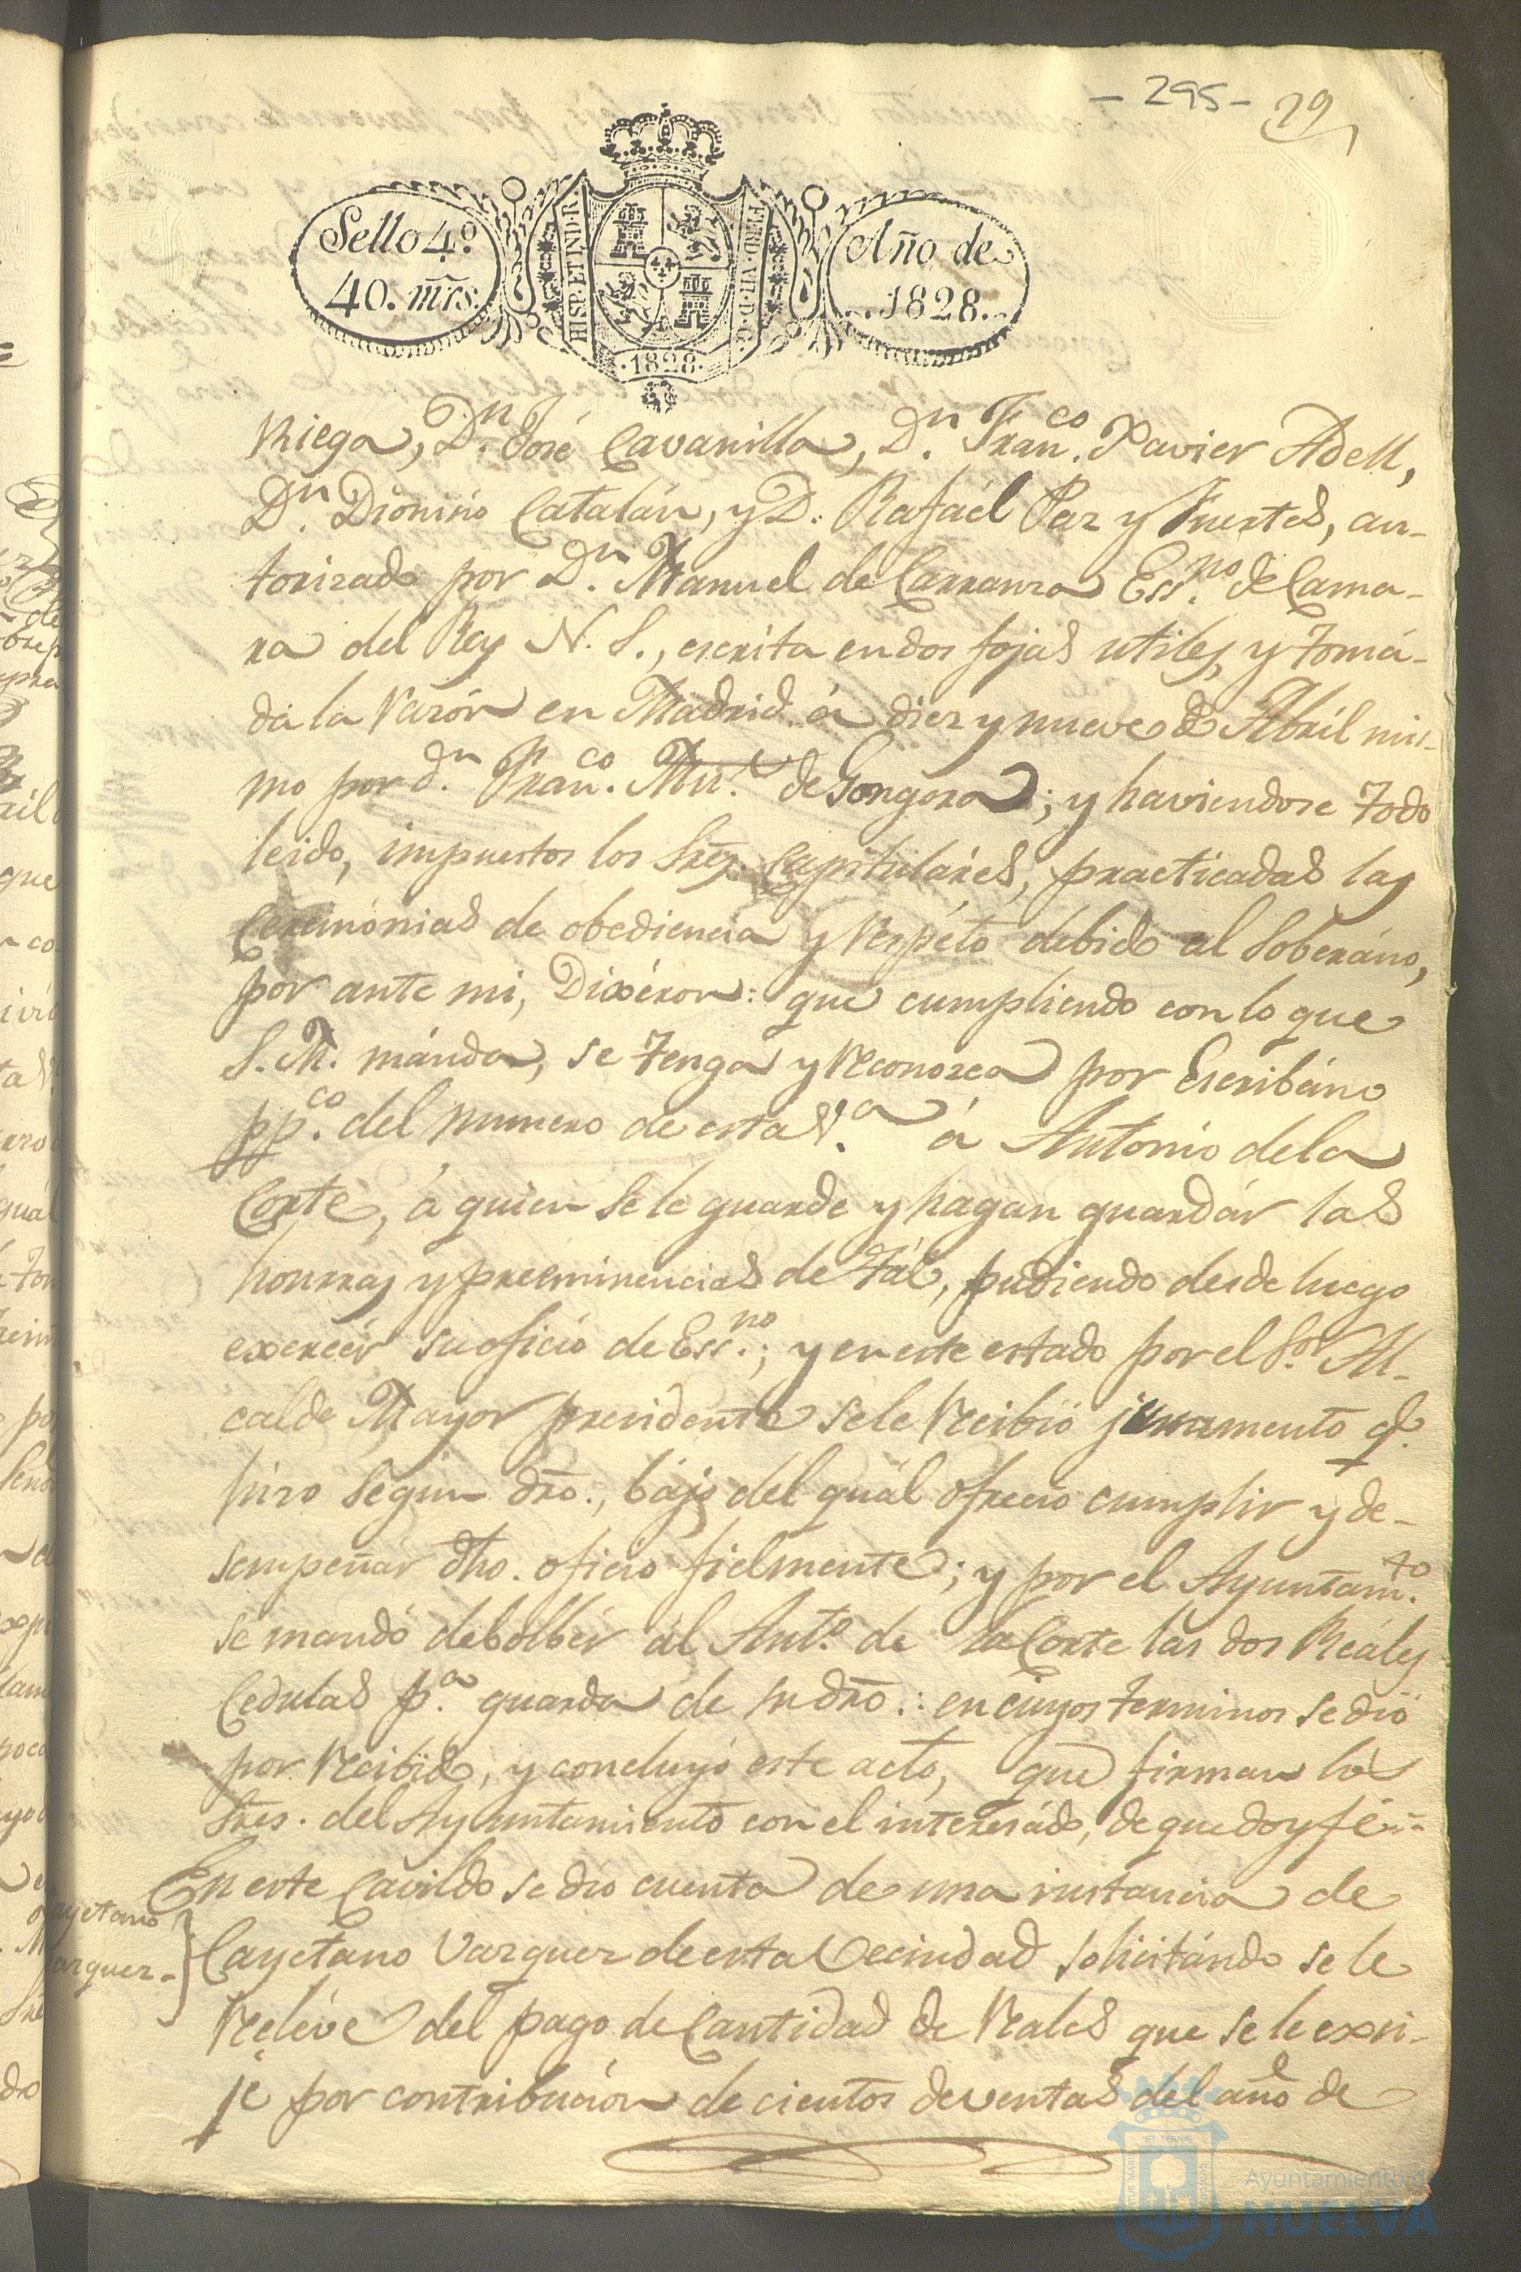 - 295 - 29
Sello 4º.
40. mr̃s.
HISP. ET IND. R.
FERD. VII. D. G.
.1828.
Año de
1828.
Riega, Dn. José Cavanilla, Dn. Franco. Xavier Adell,
Dn. Dionisio Catalán, y D. Rafaél Paz y Fuertes, au-
torizada por Dn. Manuel de Carranza Essno. de Cama-
ra del Rey N. S., escríta en dos fojas utiles, y tomá-
da la razón en Madrid á diez y nueve de Abríl mis-
mo por dn. Franco. de Gongora; y haviendose todo
leido, impuestos los Sres. Capituláres, practicadas las
Ceremónias de obediencia y respéto debido al Soberáno,
por ante mi, Dixéron: que cumpliendo con lo que
S. M. mánda, se tenga y reconozca por Escribáno
ppco. del numero de esta Va. á Antonio de la
Corte, á quien se le guarde y hagan guardár las
honrras y preeminencias de tál, pudiendo desde luego
exercér su oficio de Essno.; y en este estado por el Sor. Al-
calde Mayor presidente se le recibió juramento q.
hizo segun dro., bájo del quál ofreció cumplir y de-
sempeñár dho. oficio fielmente; y por el Ayuntamto.
se mandó debolbér al Anto. de la Corte las dos Reáles
Cedulas pa. guarda de su dro.: en cuyos terminos se dió
por recibido, y concluyó este acto, que firman los
Sres. del Ayuntamiento con el interesádo, de que doy fé..
En este Cavildo se dio cuenta de una instancia de
Cayetano
Vazquez.
Cayetano Vazquez de esta Vecindad solicitándo se le
reléve del pago de Cantidad de Reales que se le exi-
je por contribución de cientos de ventas del año de
Ayuntamiento de
HUELVA